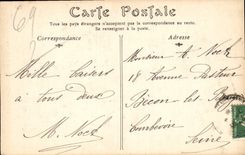 69
Carte Postale
Tous les pays étrangers n'acceptent pas la correspondance au verso.
Se renseigner à la poste.
Correspondance
Adresse
Mille baisers
à tous deux
M. Noel
Monsieur A. Noël
18 Avenue Pasteur
Bécon les
Courbevoie
Seine